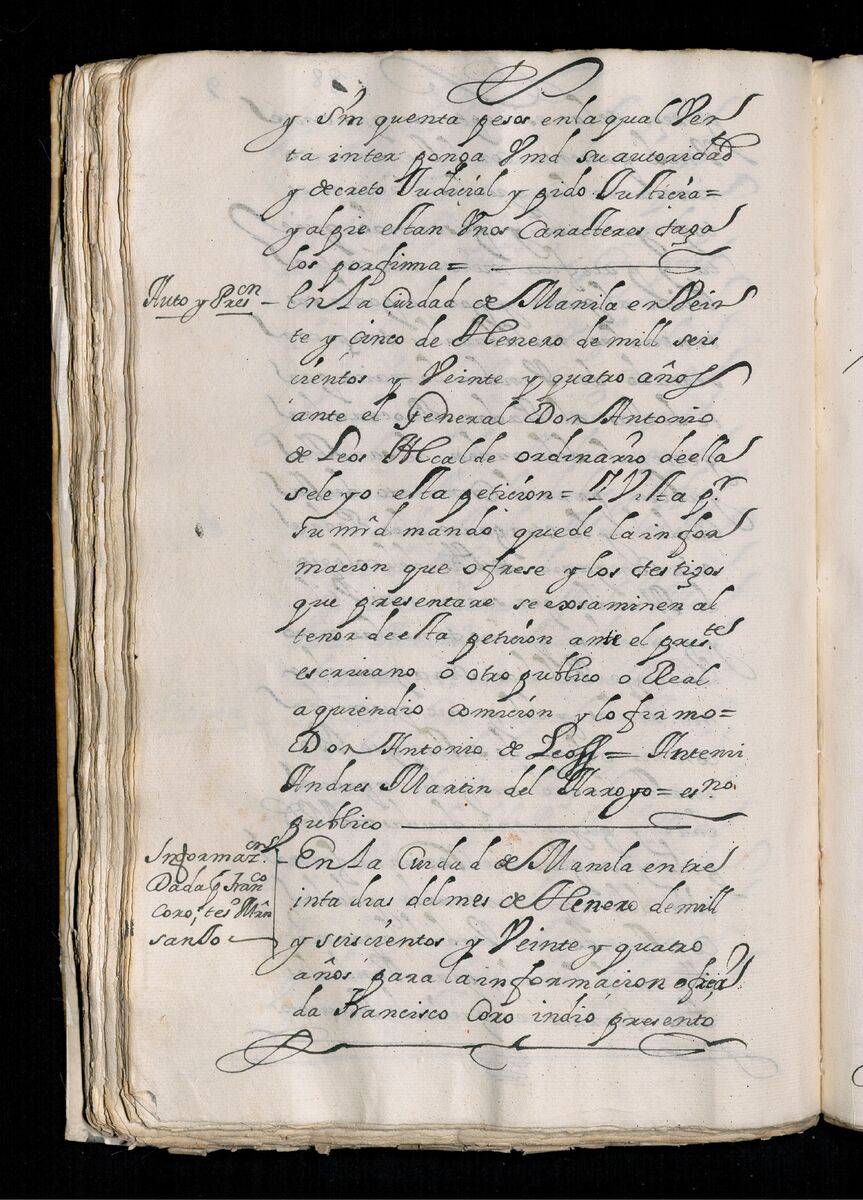 y Sinquenta pesos en la qual Ven
ta inter ponga Vmd su autoridad
y decreto Judicial y pido Justicia=
y al pie estan Vnos Caracteres taga
los por firma=
Auto y Prescn
En La Ciudad de Manila en Vein
te y Cinco de Henero de mill seis
cientos y Veinte y quatro años
ante el General Don Antonio
de Leos Alcalde ordinario de ella
se leyo esta peticion= Y Vista pr
su mrd mando que de la infor
macion que ofrese y los testigos
que presentare se exsaminen al
tenor de esta peticion ante el preste
escrivano o otro publico o Real
a quien dio Comicion y lo firmo=
Don Antonio de Leoss= Ante mi
Andres Martin del Arroyo= esno
publico
Informazcns
Dada q Franco
Coro, tesº Mrn
sando
En La Ciudad de Manila en tre
inta dias del mes de Henero de mill
y seiscientos y Veinte y quatro
años para la informacion ofreçi
da Francisco Coro indio presento